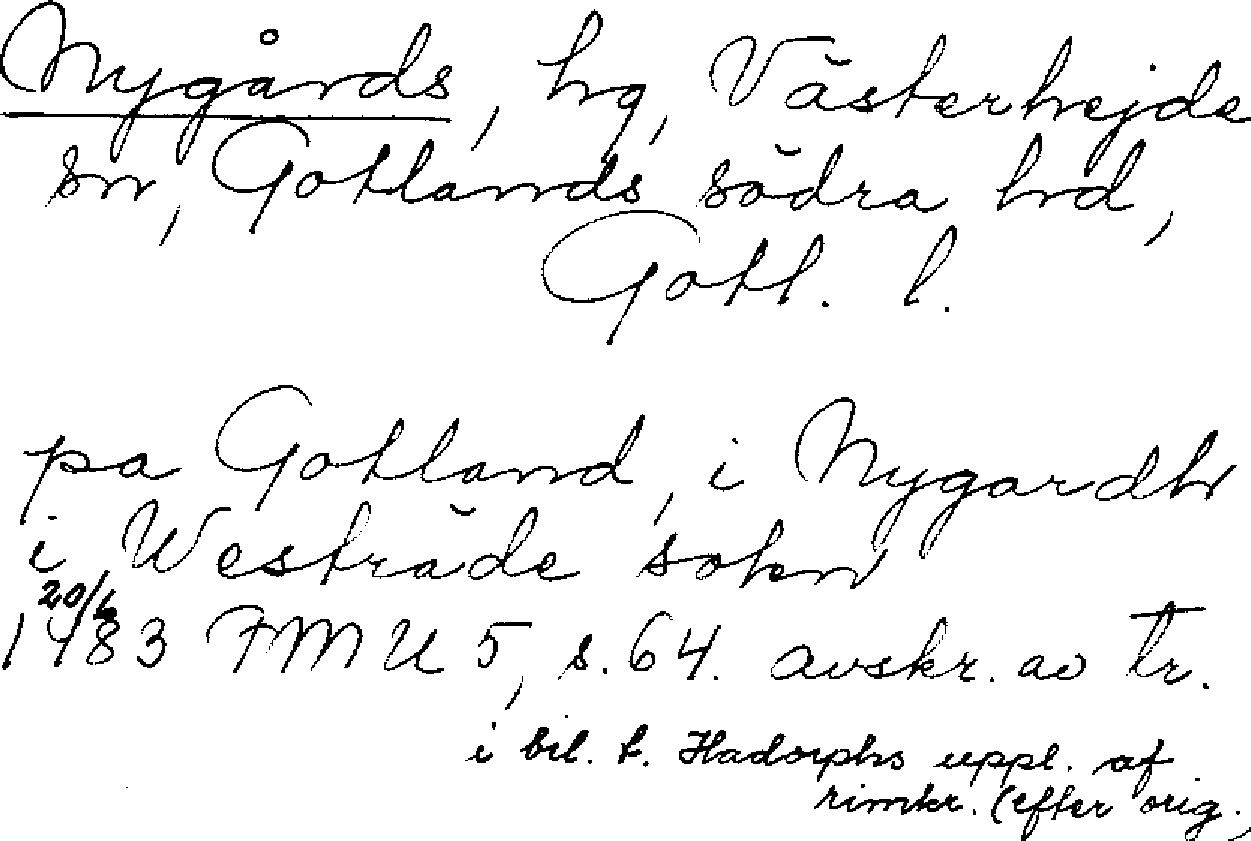 Nygårds, hg, Västerhejde
sn, Gotlands södra hd,
Gotl. l.
pa Gotland, i Nygardh
i Westräde soken
20/6
1483 FMU 5, s. 64. avskr. av tr.
i bil. t. Hadorphs uppl. af
rimkr. (efter orig.)